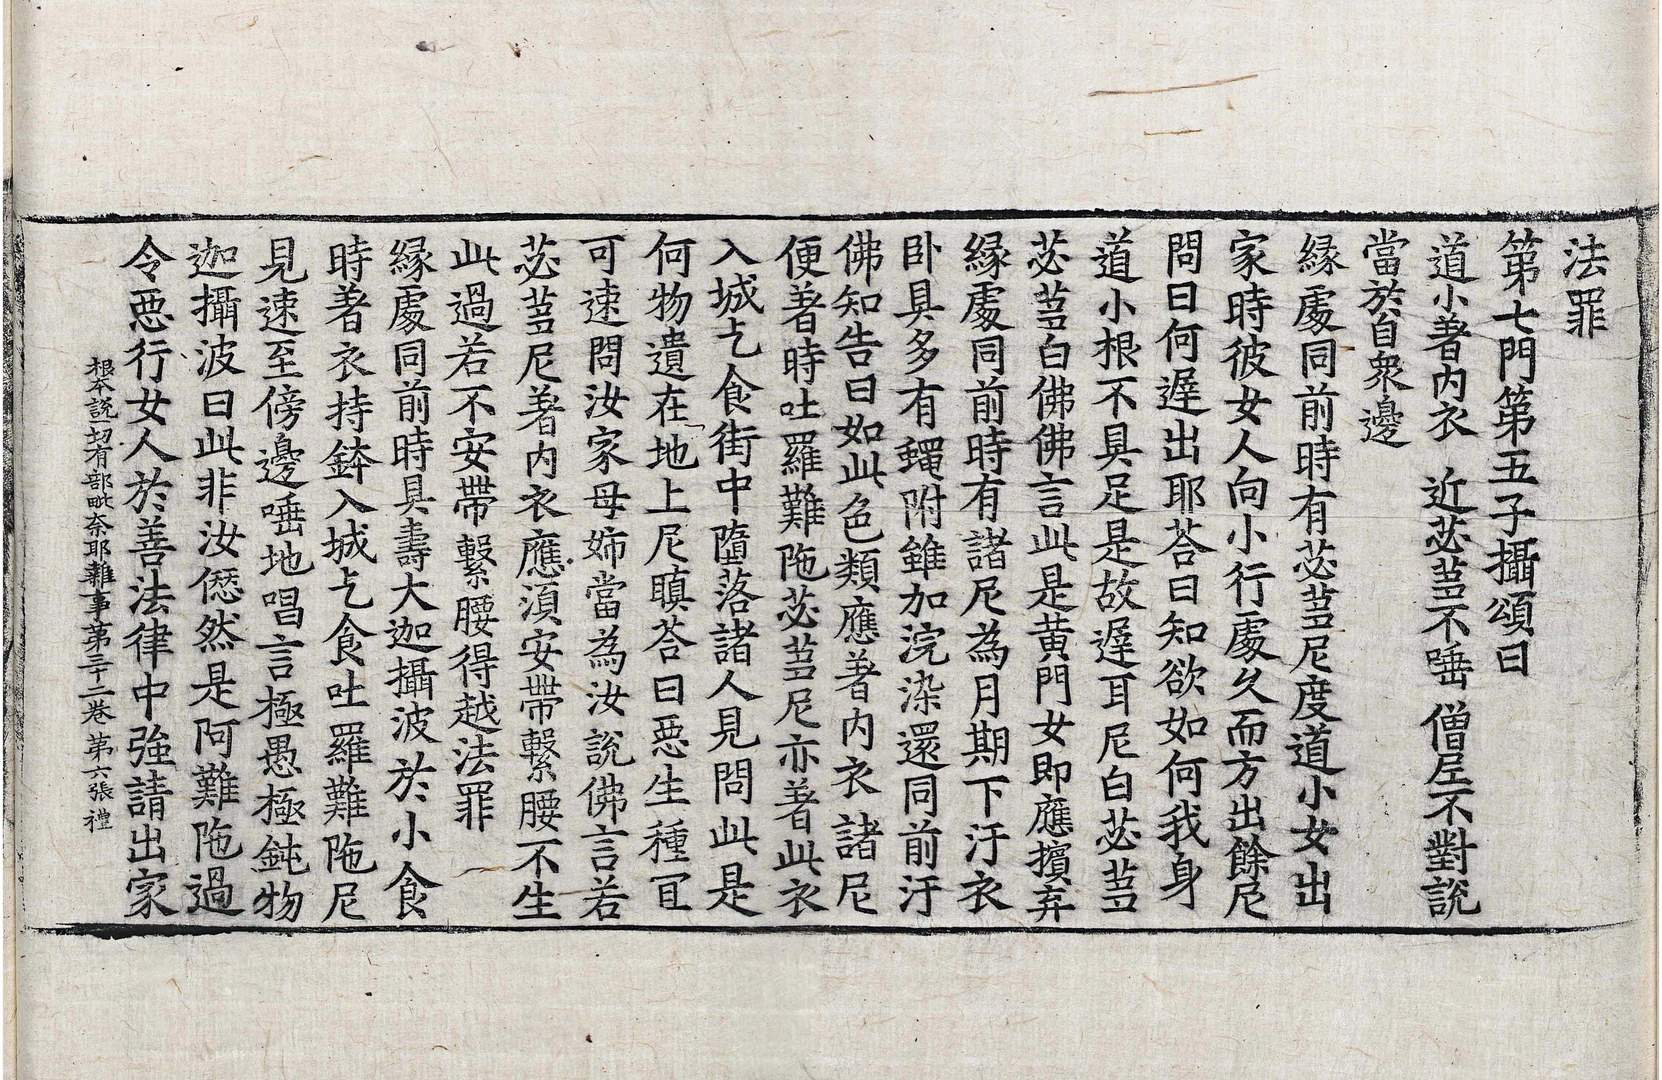 法罪
第七門第五子攝頌曰
道小著內衣　近苾芻不唾　僧尼不對說
當於自衆邊
緣處同前時有苾芻尼度道小女出
家時彼女人向小行處久而方出餘尼
問曰何遲出耶荅曰知欲如何我身
道小根不具足是故遲耳尼白苾芻
苾芻白佛佛言此是黃門女即應擯弃
緣處同前時有諸尼為月期下汙衣
卧具多有蠅附雖加浣染還同前汙
佛知告曰如此色類應著內衣諸尼
便著時吐羅難陁苾芻尼亦著此衣
入城乞食街中墮落諸人見問此是
何物遺在地上尼瞋荅曰惡生種冝
可速問汝家母姊當為汝說佛言若
苾芻尼著內衣應須安帶繫腰不生
此過若不安帶繫腰得越法罪
緣處同前時具壽大迦攝波於小食
時著衣持鉢入城乞食吐羅難陁尼
見速至傍邊唾地唱言極愚極鈍物
迦攝波曰此非汝𠎝然是阿難陁過
令惡行女人於善法律中強請出家
根本說一切有部毗奈耶雜事第三十二卷　第六張　禮